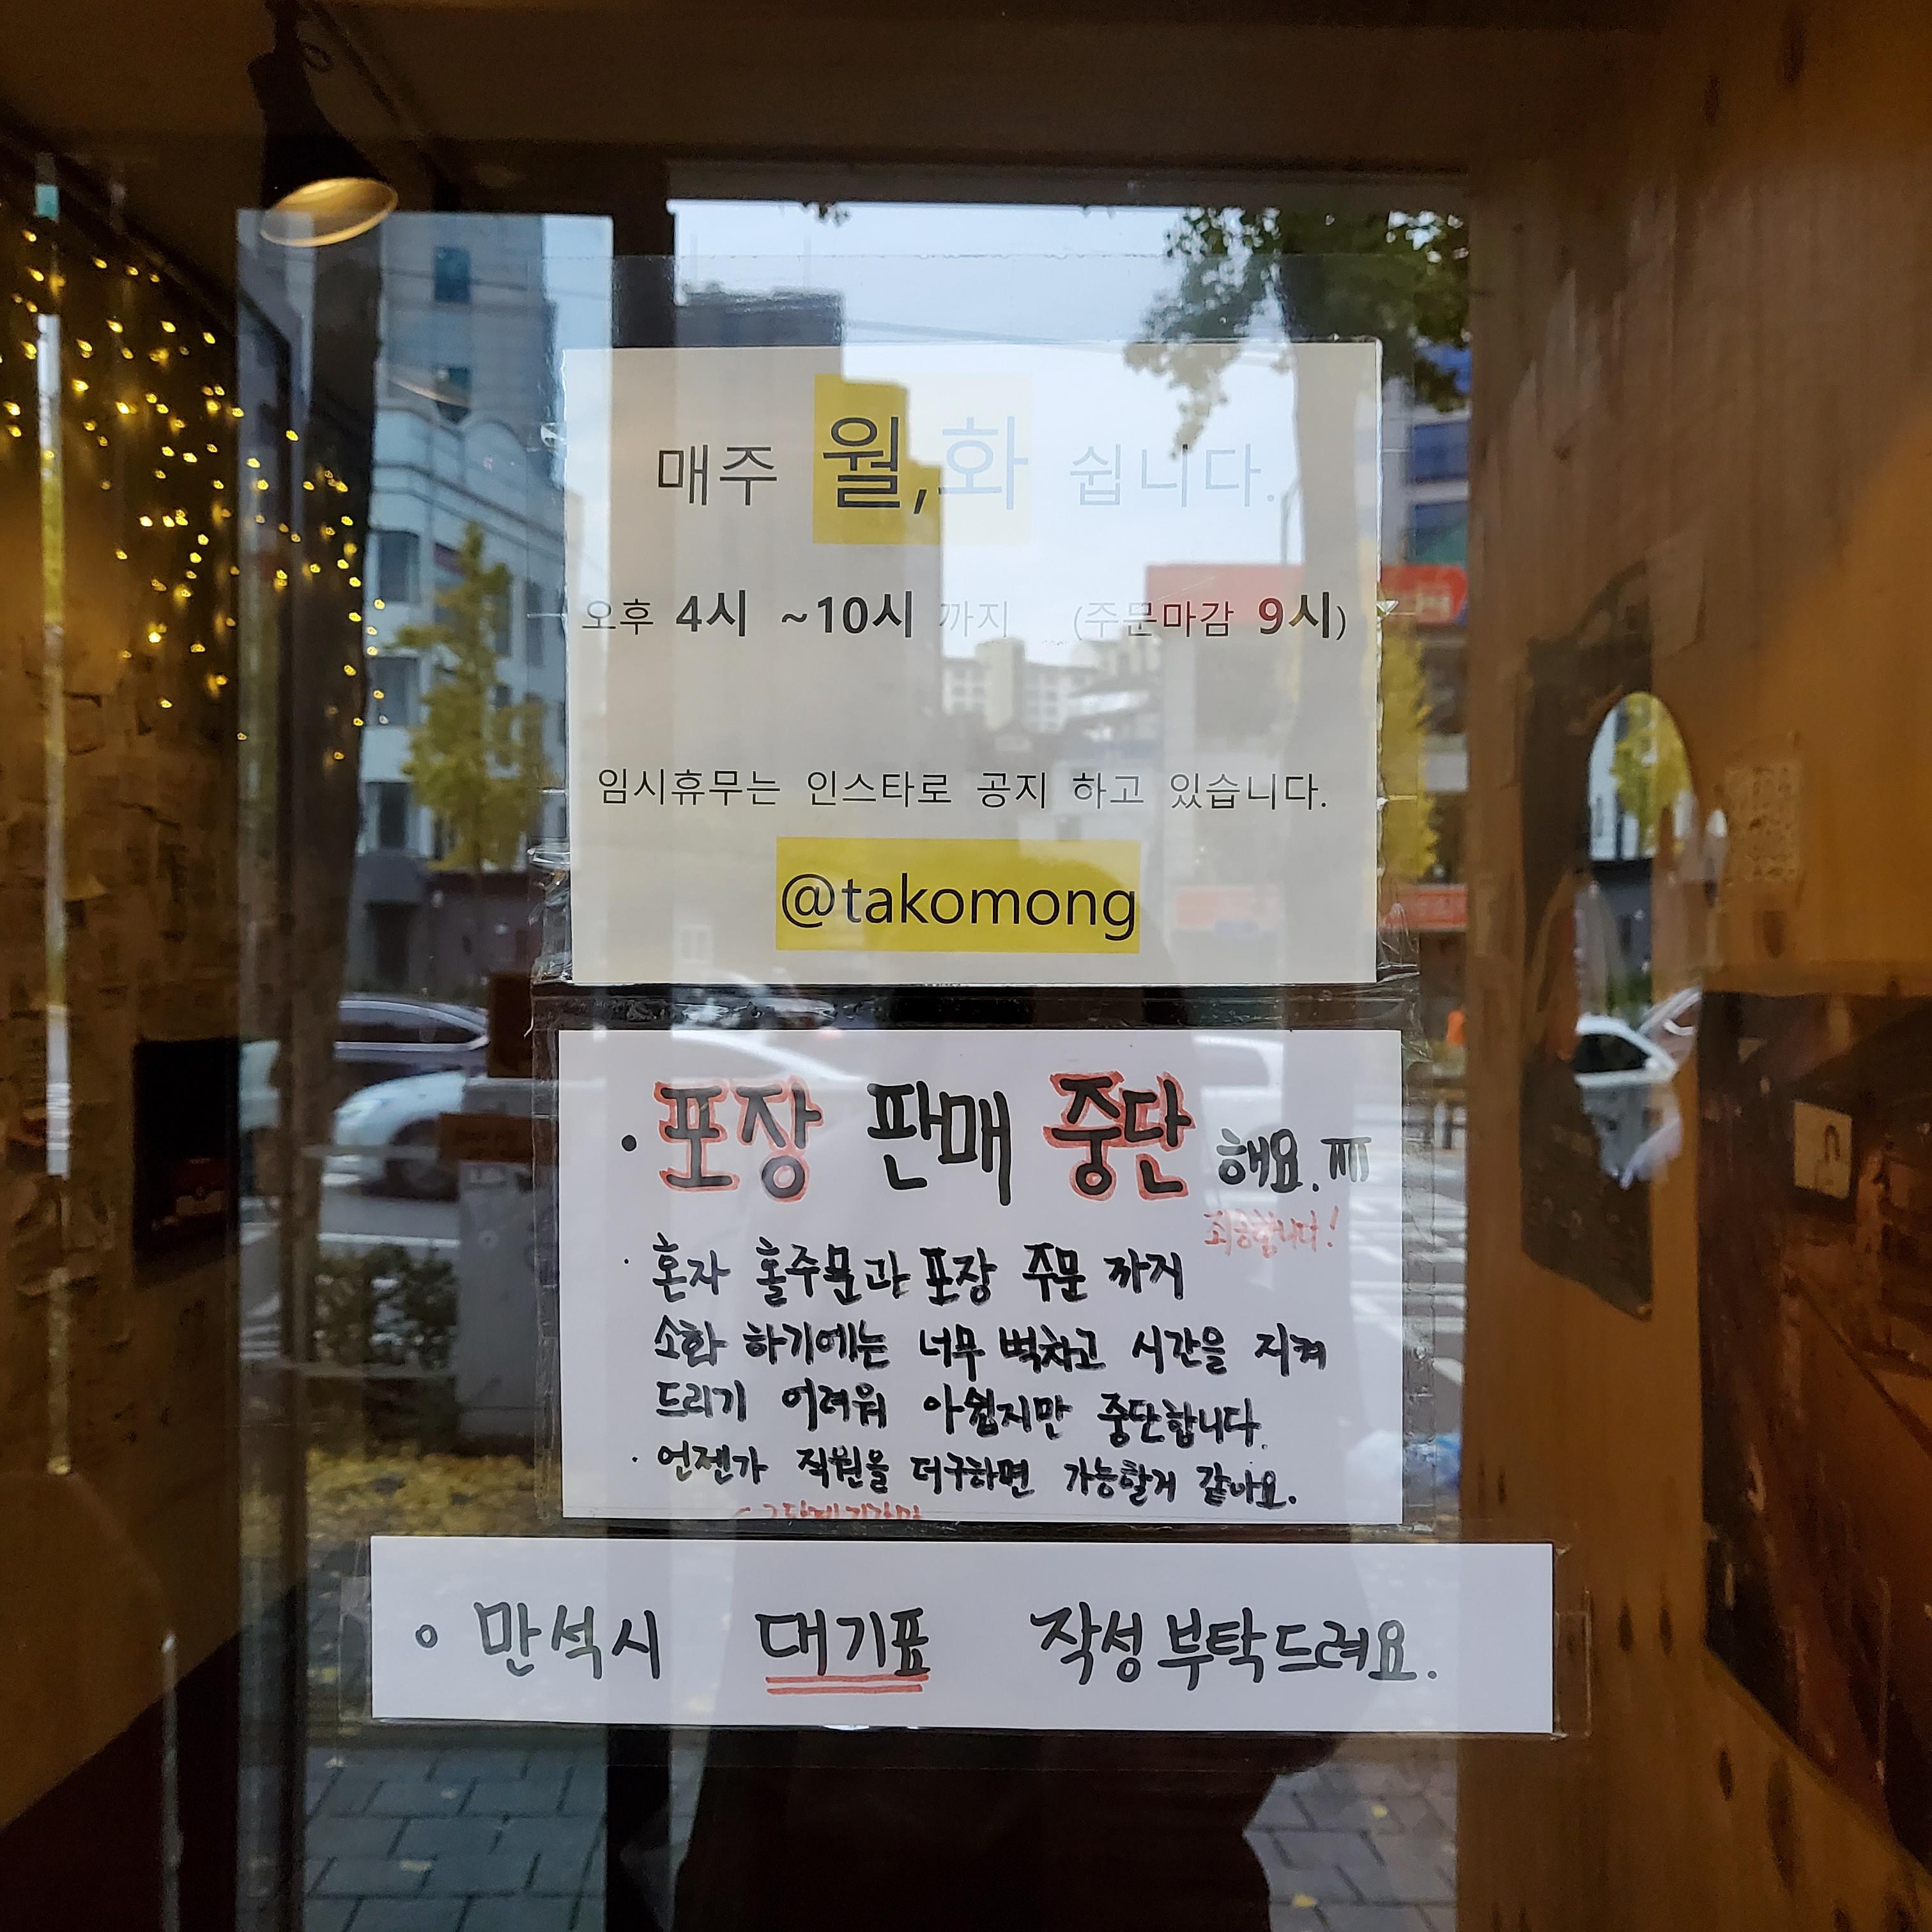 매주 월,화 쉽니다.
오후 4시 ~10시 까지 (주문마감 9시)
임시휴무는 인스타로 공지 하고 있습니다.
@takomong
• 포장 판매 중단 해요. ㅠㅠ
죄송합니다!
· 혼자 홀주문과 포장 주문 까지
소화 하기에는 너무 벅차고 시간을 지켜
드리기 어려워 아쉽지만 중단합니다.
· 언젠가 직원을 더구하면 가능할거 같아요.
○ 만석시 대기표 작성부탁드려요.